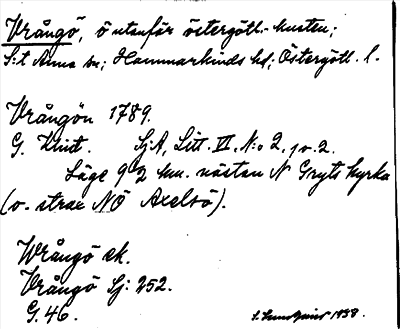 Vrångö, ö utanför östergötl.-kusten;
S:t Anna sn; Hammarkinds hd; Östergötl. l.
Vrångön 1789.
G. Klint. SjA, Litt. VI, N:o 2, pv. 2.
Läge 9 2 km. nästan N Gryts kyrka
(o. strax NÖ Axelsö).
Wrångö ek.
Vrångö Sj: 252.
G. 46.
1938.